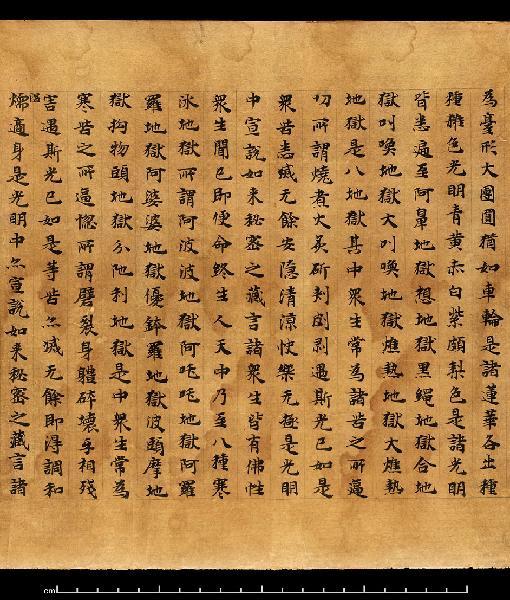 為臺形大團圓猶如車輪是諸蓮華各出種
種雜色光明青黃赤白紫頗梨色是諸光明
皆悉遍至阿鼻地獄想地獄黑繩地獄合地
獄叫喚地獄大叫喚地獄燋熱地獄大燋熱
地獄是八地獄其中衆生常為諸苦之所逼
切所謂燒煮火炙斫刾㓟剥遇斯光已如是
衆苦悉滅无餘安隱清涼快樂无極是光明
中宣說如来秘密之藏言諸衆生皆有佛性
衆生聞已即便命終生人天中乃至八種寒
冰地獄所謂阿波波地獄阿吒吒地獄阿羅
羅地獄阿婆婆地獄優鉢羅地獄波頭摩地
獄拘物頭地獄分陁利地獄是中衆生常為
寒苦之所逼惱所謂劈裂身體碎壞互相殘
害遇斯光已如是等苦亦滅无餘即得調和
適身是光明中亦宣說如来秘密之藏言諸
cm